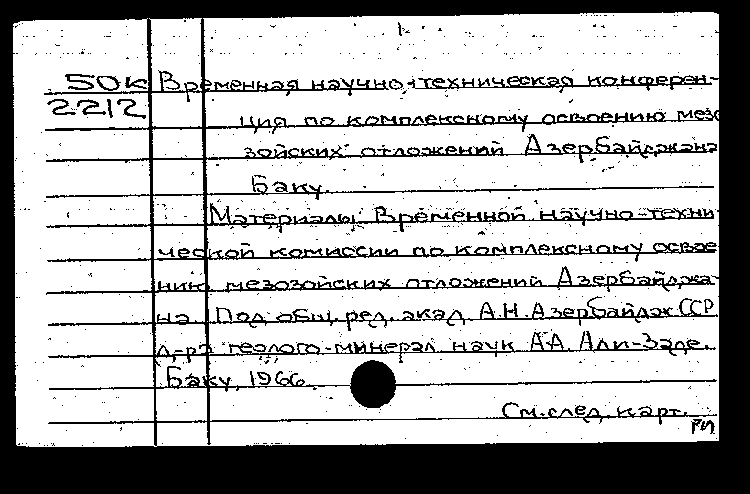 50к Временная научно-техническая конферен-
2212
ция по комплексному освоению мезо
зойских отложений Азербайджана
Баку.
Материалы Временной научно-техни
ческой комиссии по комплексному освое
нию мезозойских отложений Азербайджа
на Под общ. ред. акад. А.Н. Азербайдж ССР
д-ра геолого-минерал наук А А. Али-Заде.
Баку, 1966.
См. след. карт.
РП